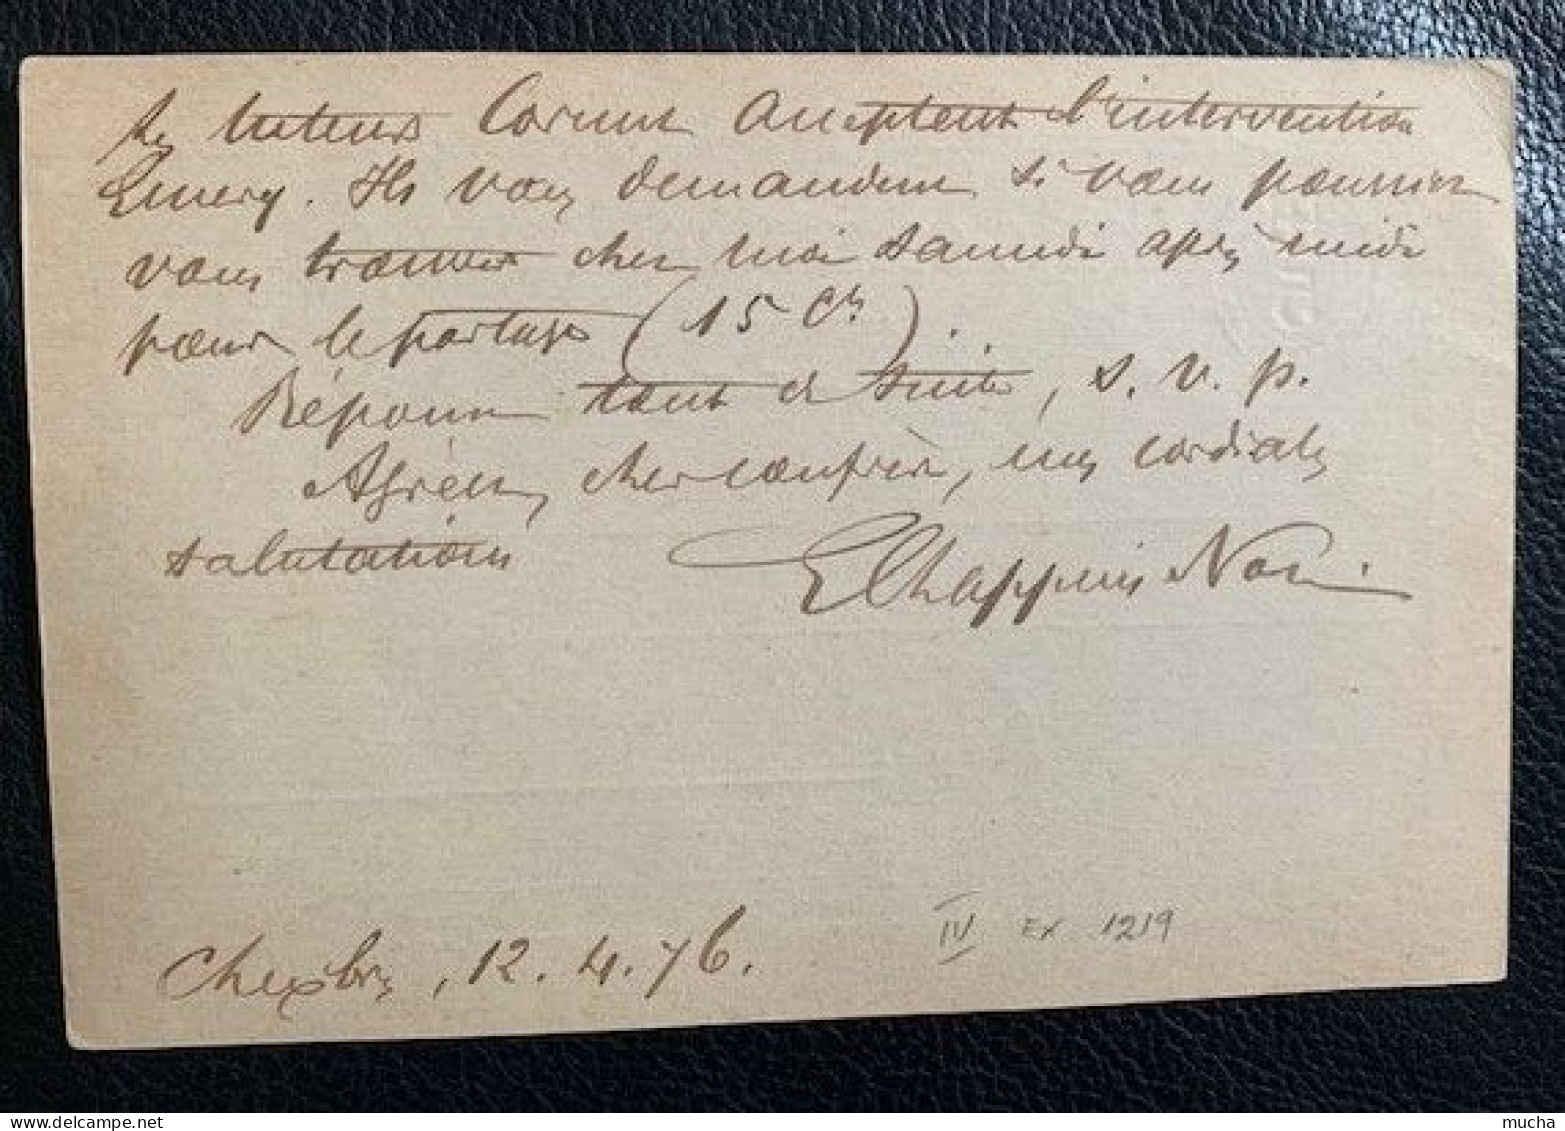 Les tuteurs Cornut acceptent l'intervention
Emery. Ils vous demandent si vous pourriez
vous trouver chez moi samedi après midi
pour le partage (15 ct).
Réponse tout de suite, s. v. p.
Agréez, cher confrère, mes cordiales
salutations
E Chappuis Not.
Chexbres, 12.4.76.
IV Ex 1219
mucha